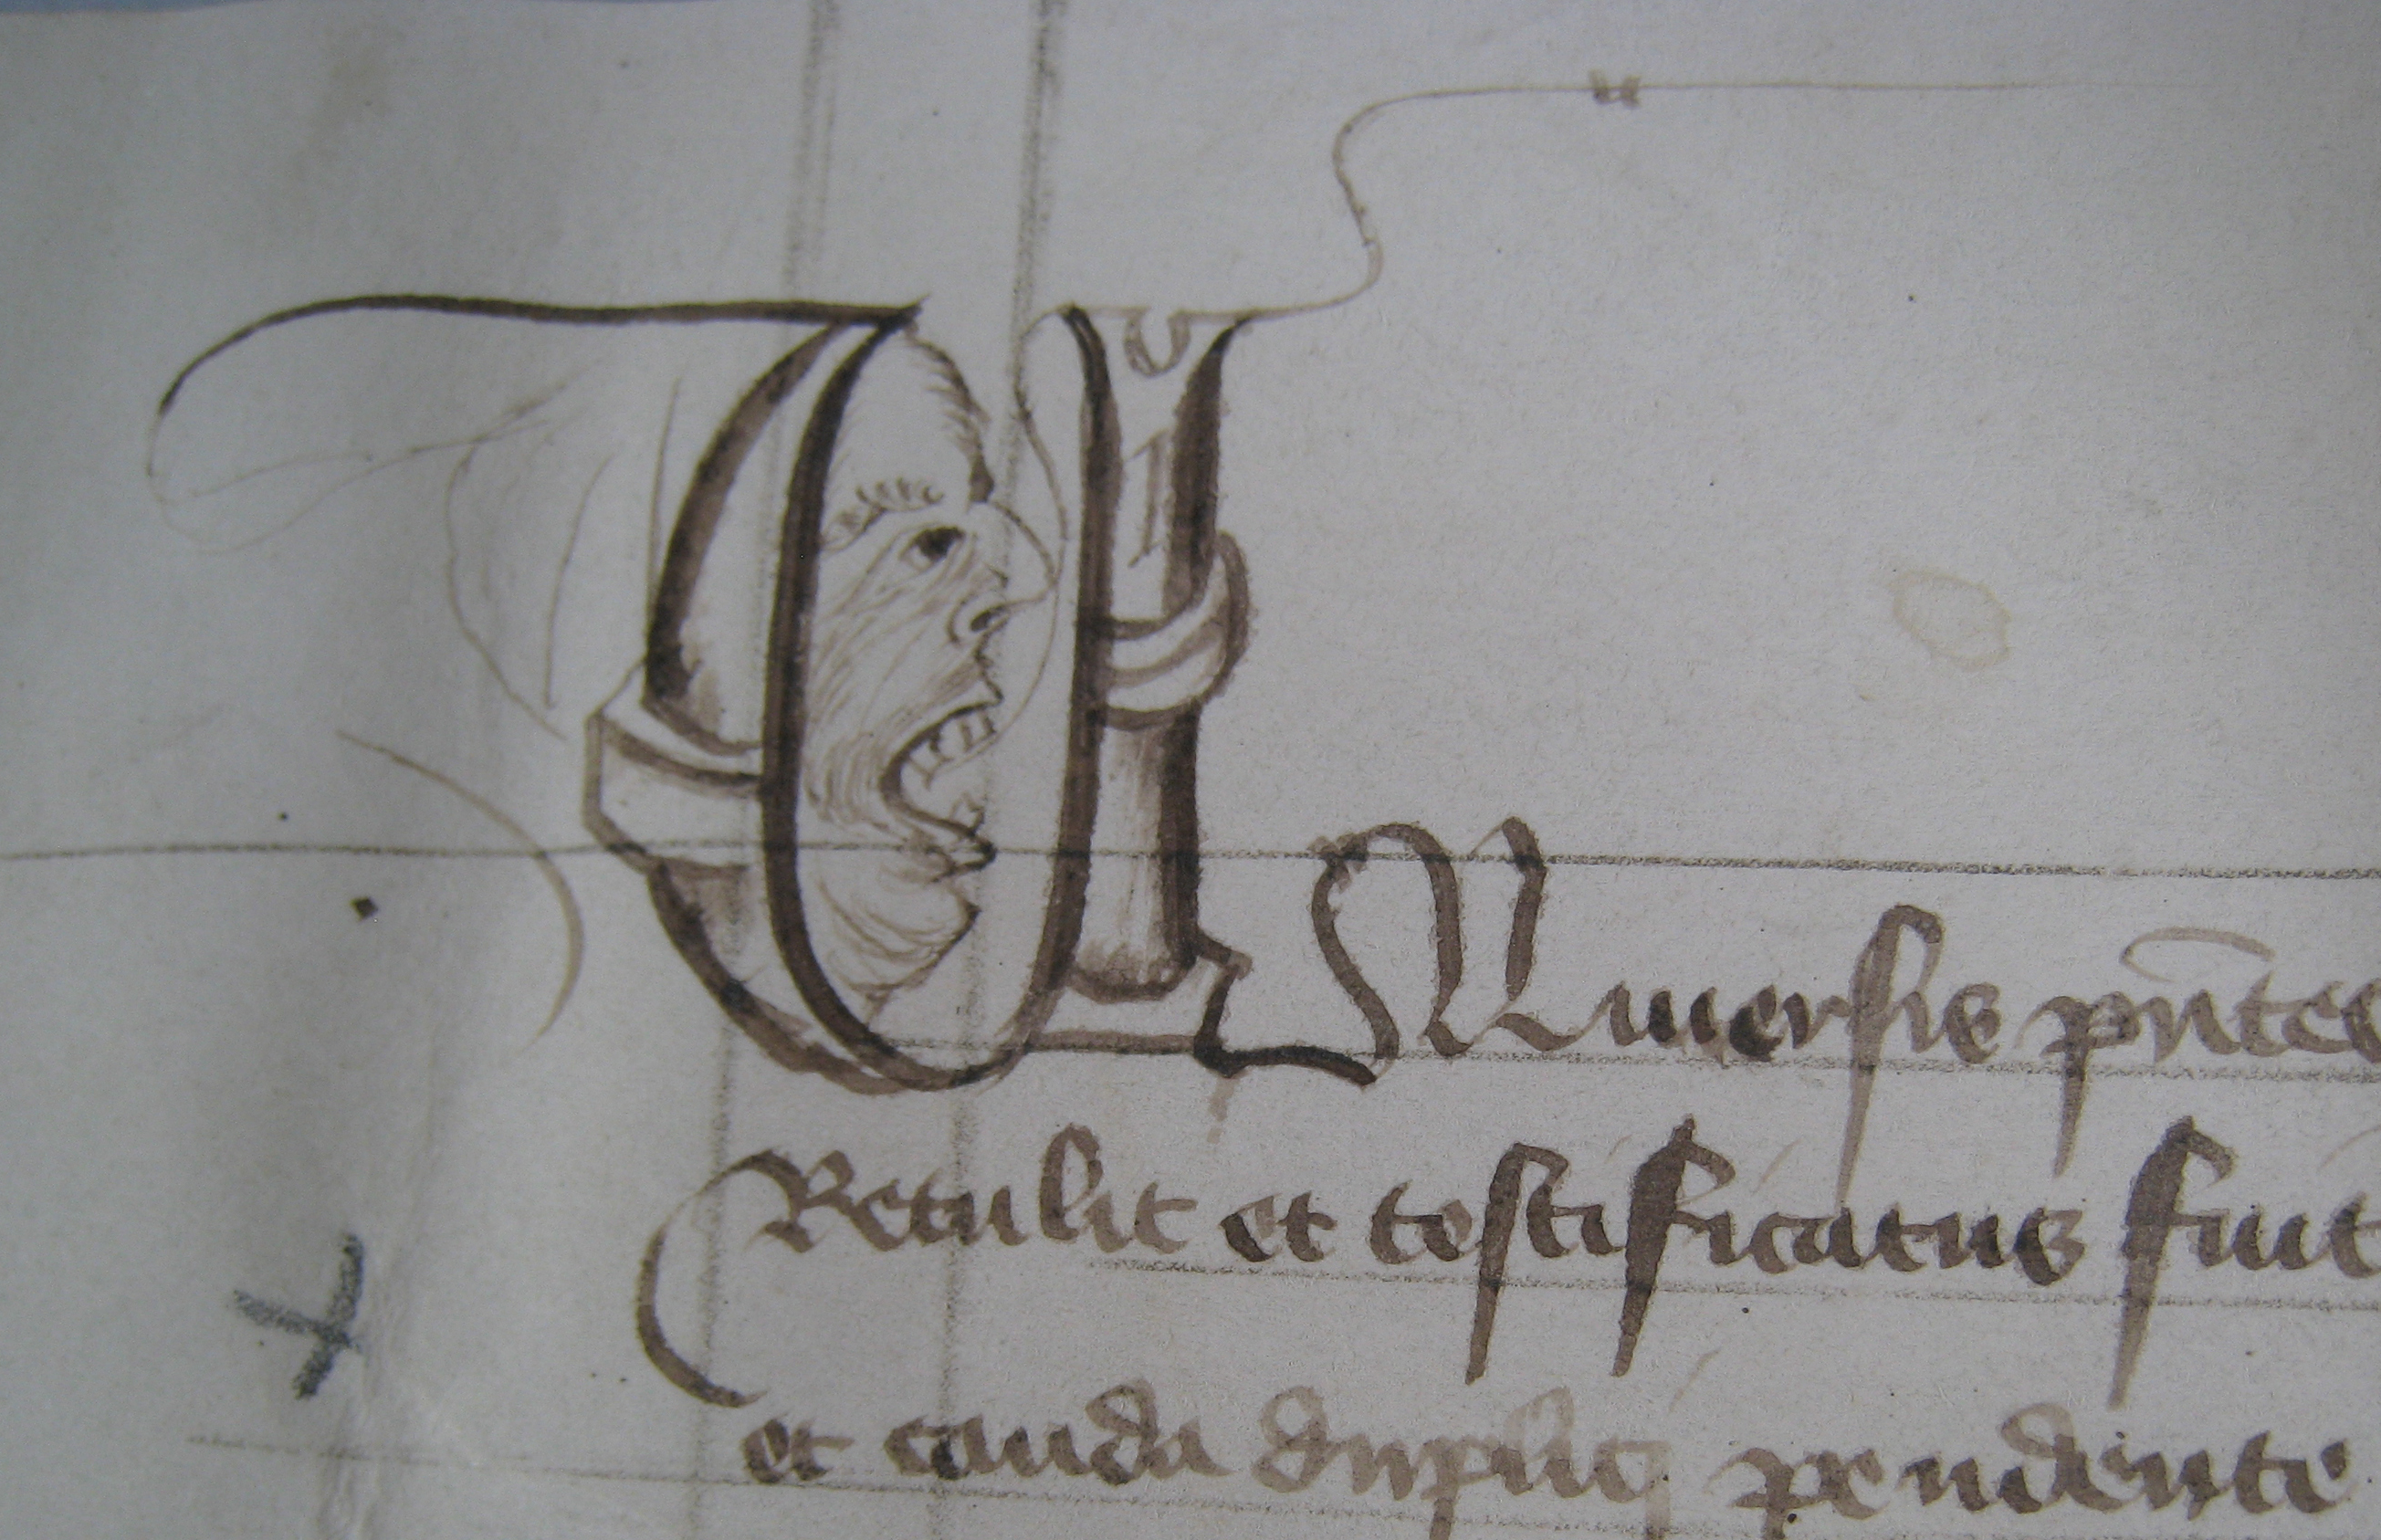 UNiuersis pñtes
Retulit et testificatus fuit
et cauda duplici pendente